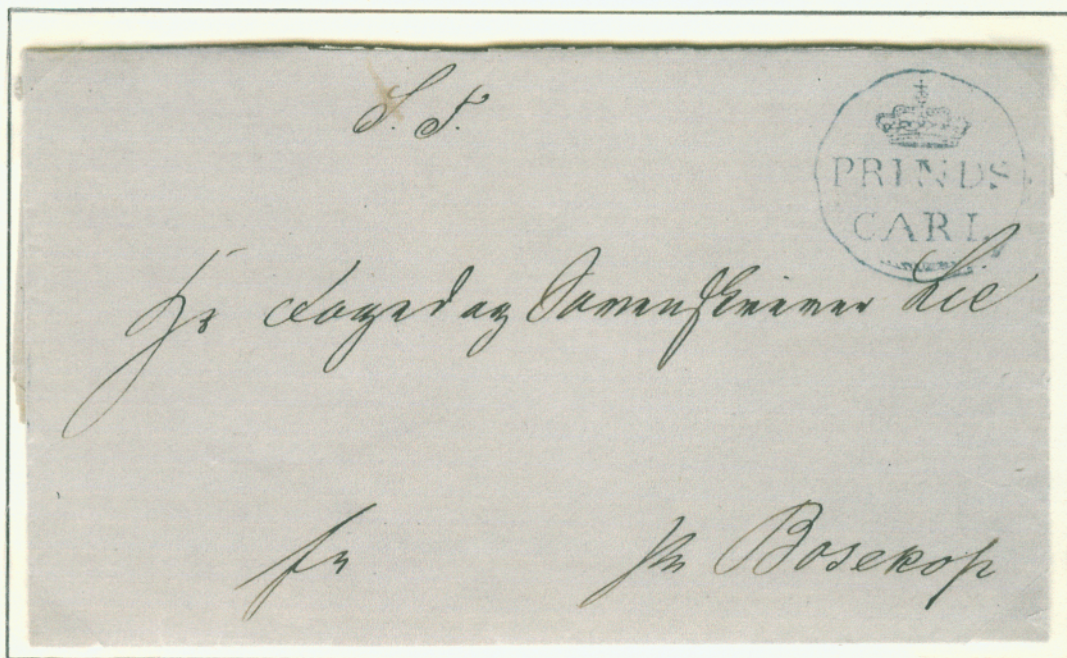 S. T.
PRINDS
CARL
Hr Foged og Sorenskriver Lie
fr
pr Bosekop